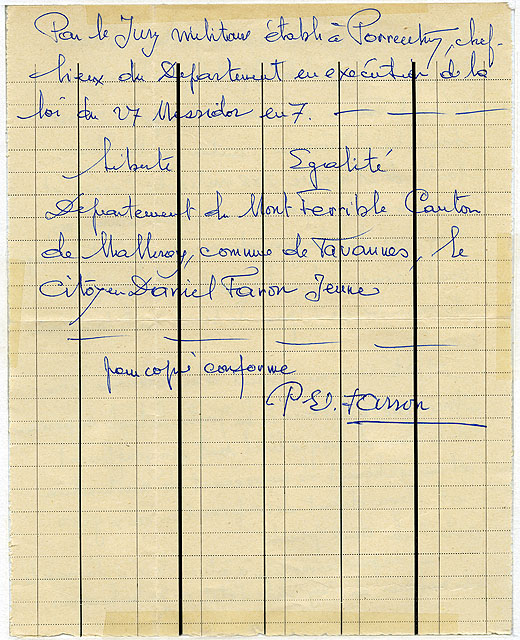 Par le Jury militaire établi à Porrentruy, chef-
lieux du Département en exécution de la
loi du 27 Messidor en 7. — — —
Liberté Egalité
Département du Mont Terrible Canton
de Malleray, commune de Tavannes, le
Citoyen Daniel Faron Jeune
— — — —
pour copie conforme
P. Ed. Farron